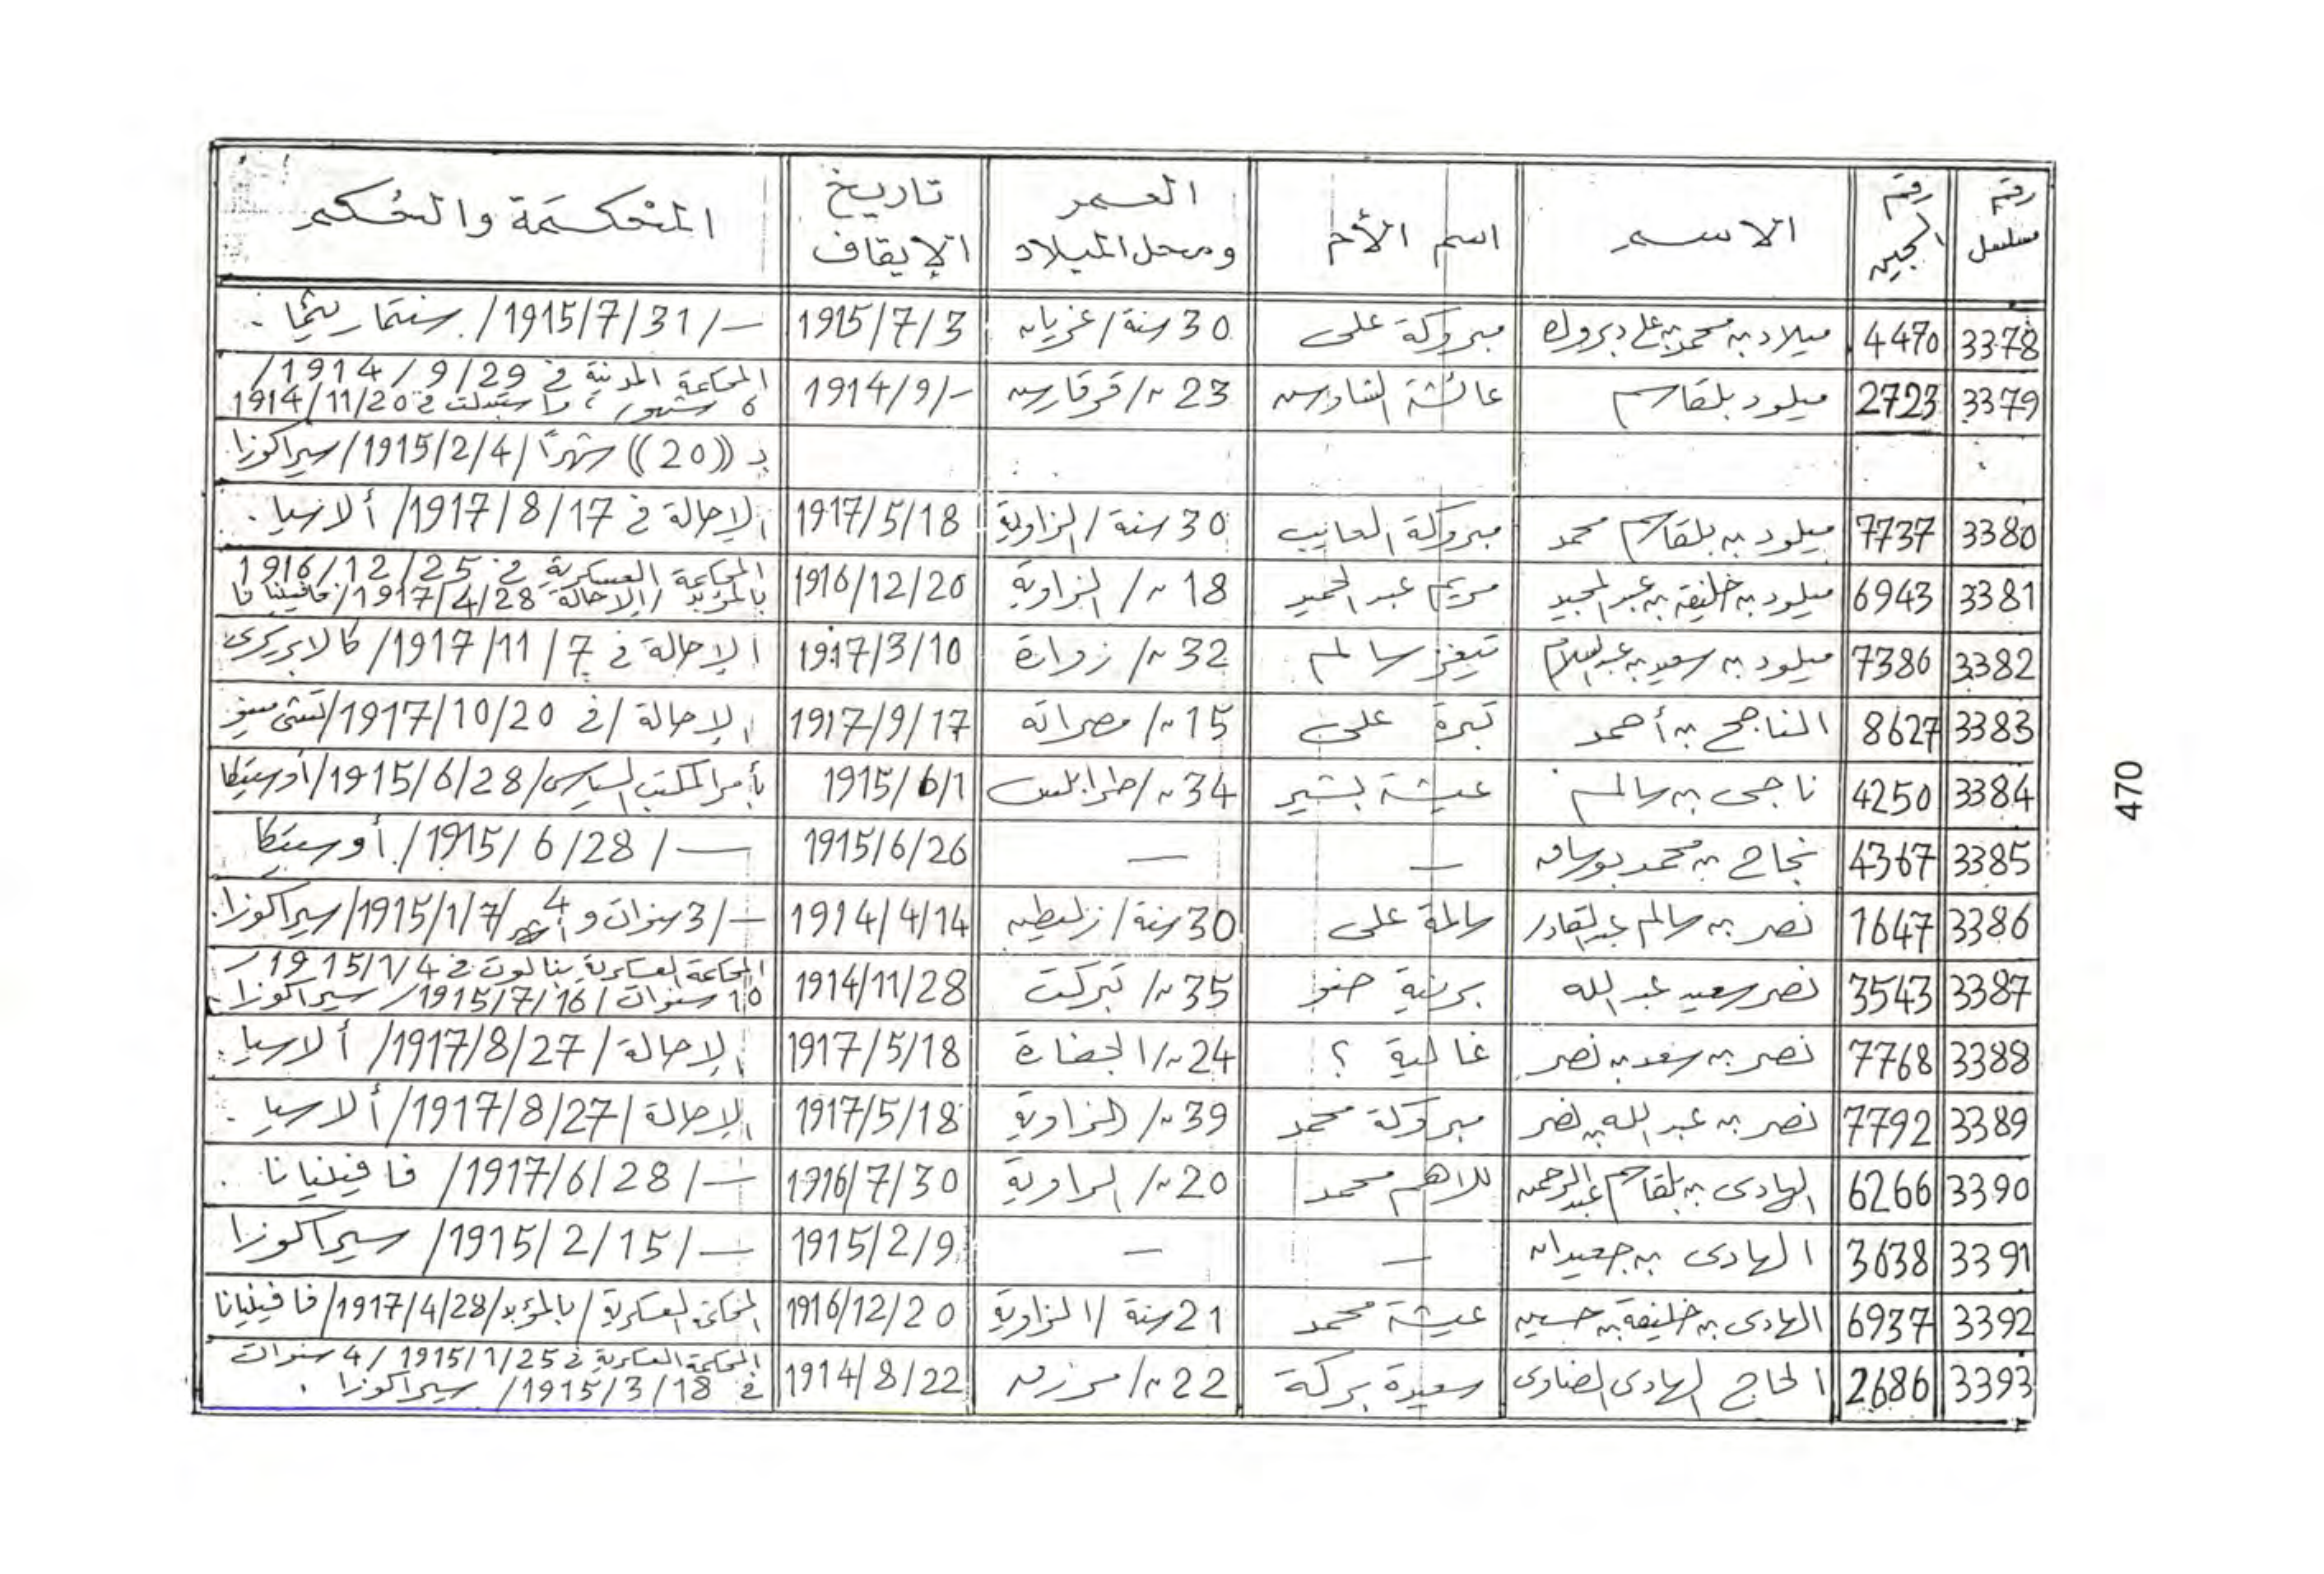 رقم مسلسل | رقم السجين | الاسم | اسم الأم | العمر ومحل الميلاد | تاريخ الإيقاف | المحكمة والحكم
3378 | 4470 | ميلاد بن محمد بن علي دبروك | مبروكة على | 30 سنة / غريان | 1915/7/3 | ــ / 1915/7/31 /
3379 | 2723 | ميلود بلقاسم | عائشة الشاوس | 23 // قرقارس | 1914/9/- | المحاكمة المدنية في 1914/9/29 /
6 شهور، واستبدلت في 1914/11/20
بـ ((20)) شهرًا / 1915/2/4 / سيراكوزا
3380 | 7737 | ميلود بن بلقاسم محمد | مبروكة العايب | 30 سنة / الزاوية | 1917/5/18 | الإحالة في 1917/8/17 / ألاسيا .
3381 | 6943 | ميلود بن خليفة بن عبد المجيد | مريم عبد الحميد | 18 // الزاوية | 1916/12/20 | المحاكمة العسكرية في 1916/12/25
بالمؤبد / الإحالة 1917/4/28 / فافينيانا
3382 | 7386 | ميلود بن سعيد بن عبد السلام | سالم | 32 // زوارة | 1917/3/10 | الإحالة في 1917/11/7 /
3383 | 8627 | الناجح بن أحمد | تبرة على | 15 // مصراته | 1917/9/17 | الإحالة / في 1917/10/20 /
3384 | 4250 | ناجى بن سالم | عيشة بشير | 34 // طرابلس | 1915/6/1 | بأمر المكتب السياسى / 1915/6/28 / أوستيكا
3385 | 4367 | نجاح بن محمد | ــ | ــ | 1915/6/26 | ــ / 1915/6/28 / أوستيكا
3386 | 1647 | نصر بن سالم عبد القادر | سالمة على | 30 سنة / زليطن | 1914/4/14 | ــ / 3 سنوات و 4 أشهر / 1915/1/7 / سيراكوزا.
3387 | 3543 | نصر سعيد عبد الله | برنية ضو | 35 // تبركت | 1914/11/28 | المحاكمة العسكرية بنالوت في 1915/1/4 /
10 سنوات / 1915/7/16 / سيراكوزا .
3388 | 7768 | نصر بن سعد بن نصر | غالية ؟ | 24 // الجفارة | 1917/5/18 | الإحالة / 1917/8/27 / ألاسيا .
3389 | 7792 | نصر بن عبد الله بن نصر | مبروكة محمد | 39 // الزاوية | 1917/5/18 | الإحالة / 1917/8/27 / ألاسيا .
3390 | 6266 | الهادى بن بلقاسم عبد الرحمن | للاهم محمد | 20 // الزاوية | 1916/7/30 | ــ / 1917/6/28 / فافينيانا .
3391 | 3638 | الهادى بن جعيدان | ــ | ــ | 1915/2/9 | ــ / 1915/2/15 / سيراكوزا
3392 | 6937 | الهادى بن خليفة بن حسين | عيشة محمد | 21 سنة / الزاوية | 1916/12/20 | المحكمة العسكرية / بالمؤبد / 1917/4/28 / فافينيانا
3393 | 2686 | الحاج الهادى الضاوى | سعيدة بركة | 22 // مرزق | 1914/8/22 | المحكمة العسكرية في 1915/1/25 / 4 سنوات
في 1915/3/18 / سيراكوزا .
470